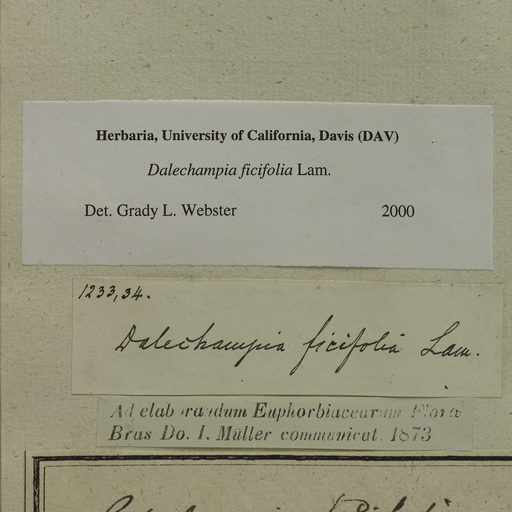 Herbaria, University of California, Davis (DAV)
Dalechampia ficifolia Lam.
Det. Grady L. Webster 2000
1233,34.
Dalechampia ficifolia Lam.
Ad elaborandum Euphorbiacearum Florae
Bras Do. I. Müller communicat. 1873